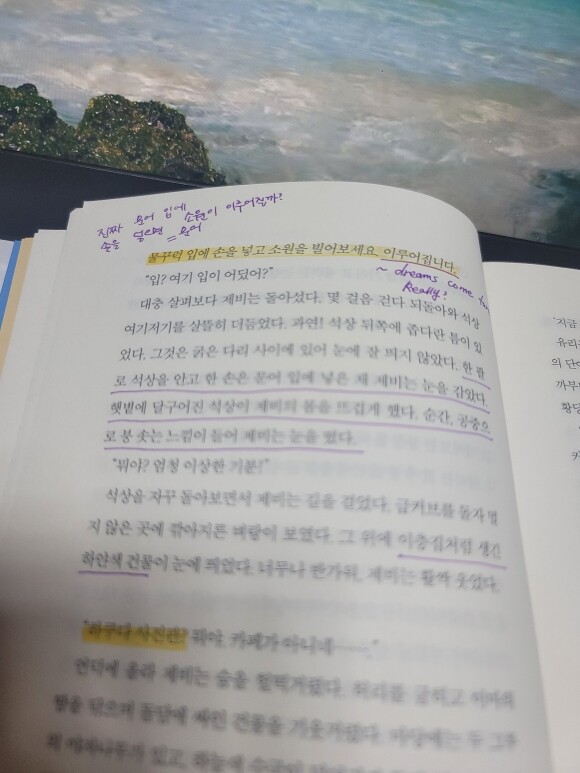 진짜 문어 입에 소원이 이루어질까?
손을 넣으면 = 문어
물꾸럭 입에 손을 넣고 소원을 빌어보세요. 이루어집니다.
~ dreams come
Really?
"입? 여기 입이 어딨어?"
대충 살펴보다 제비는 돌아섰다. 몇 걸음 걷다 되돌아와 석상
여기저기를 살뜰히 더듬었다. 과연! 석상 뒤쪽에 좁다란 틈이 있
었다. 그것은 굵은 다리 사이에 있어 눈에 잘 띄지 않았다. 한 팔
로 석상을 안고 한 손은 문어 입에 넣은 채 제비는 눈을 감았다.
햇볕에 달구어진 석상이 제비의 몸을 뜨겁게 했다. 순간, 공중으
로 붕 솟는 느낌이 들어 제비는 눈을 떴다.
"뭐야? 엄청 이상한 기분!"
석상을 자꾸 돌아보면서 제비는 길을 걸었다. 급커브를 돌자 멀
지 않은 곳에 깎아지른 벼랑이 보였다. 그 위에 이층집처럼 생긴
하얀색 건물이 눈에 띄었다. 너무나 반가워, 제비는 활짝 웃었다.
"하쿠다 사진관? 뭐야. 카페가 아니네……."
언덕에 올라 제비는 숨을 헐떡거렸다. 허리를 굽히고 이마의
땀을 닦으며 돌담에 싸인 건물을 기웃거렸다. 마당에는 두 그루
의 야자나무가 있고,
'지금
유리
의 단
까부
황당